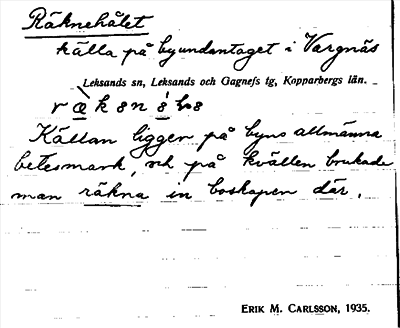 Räknehålet
källa på byundantaget i Vargnäs
Leksands sn, Leksands och Gagnefs tg, Kopparbergs län.
Källan ligger på byns allmänna
betesmark, och på kvällen brukade
man räkna in boskapen där.
ERIK M. CARLSSON, 1935.